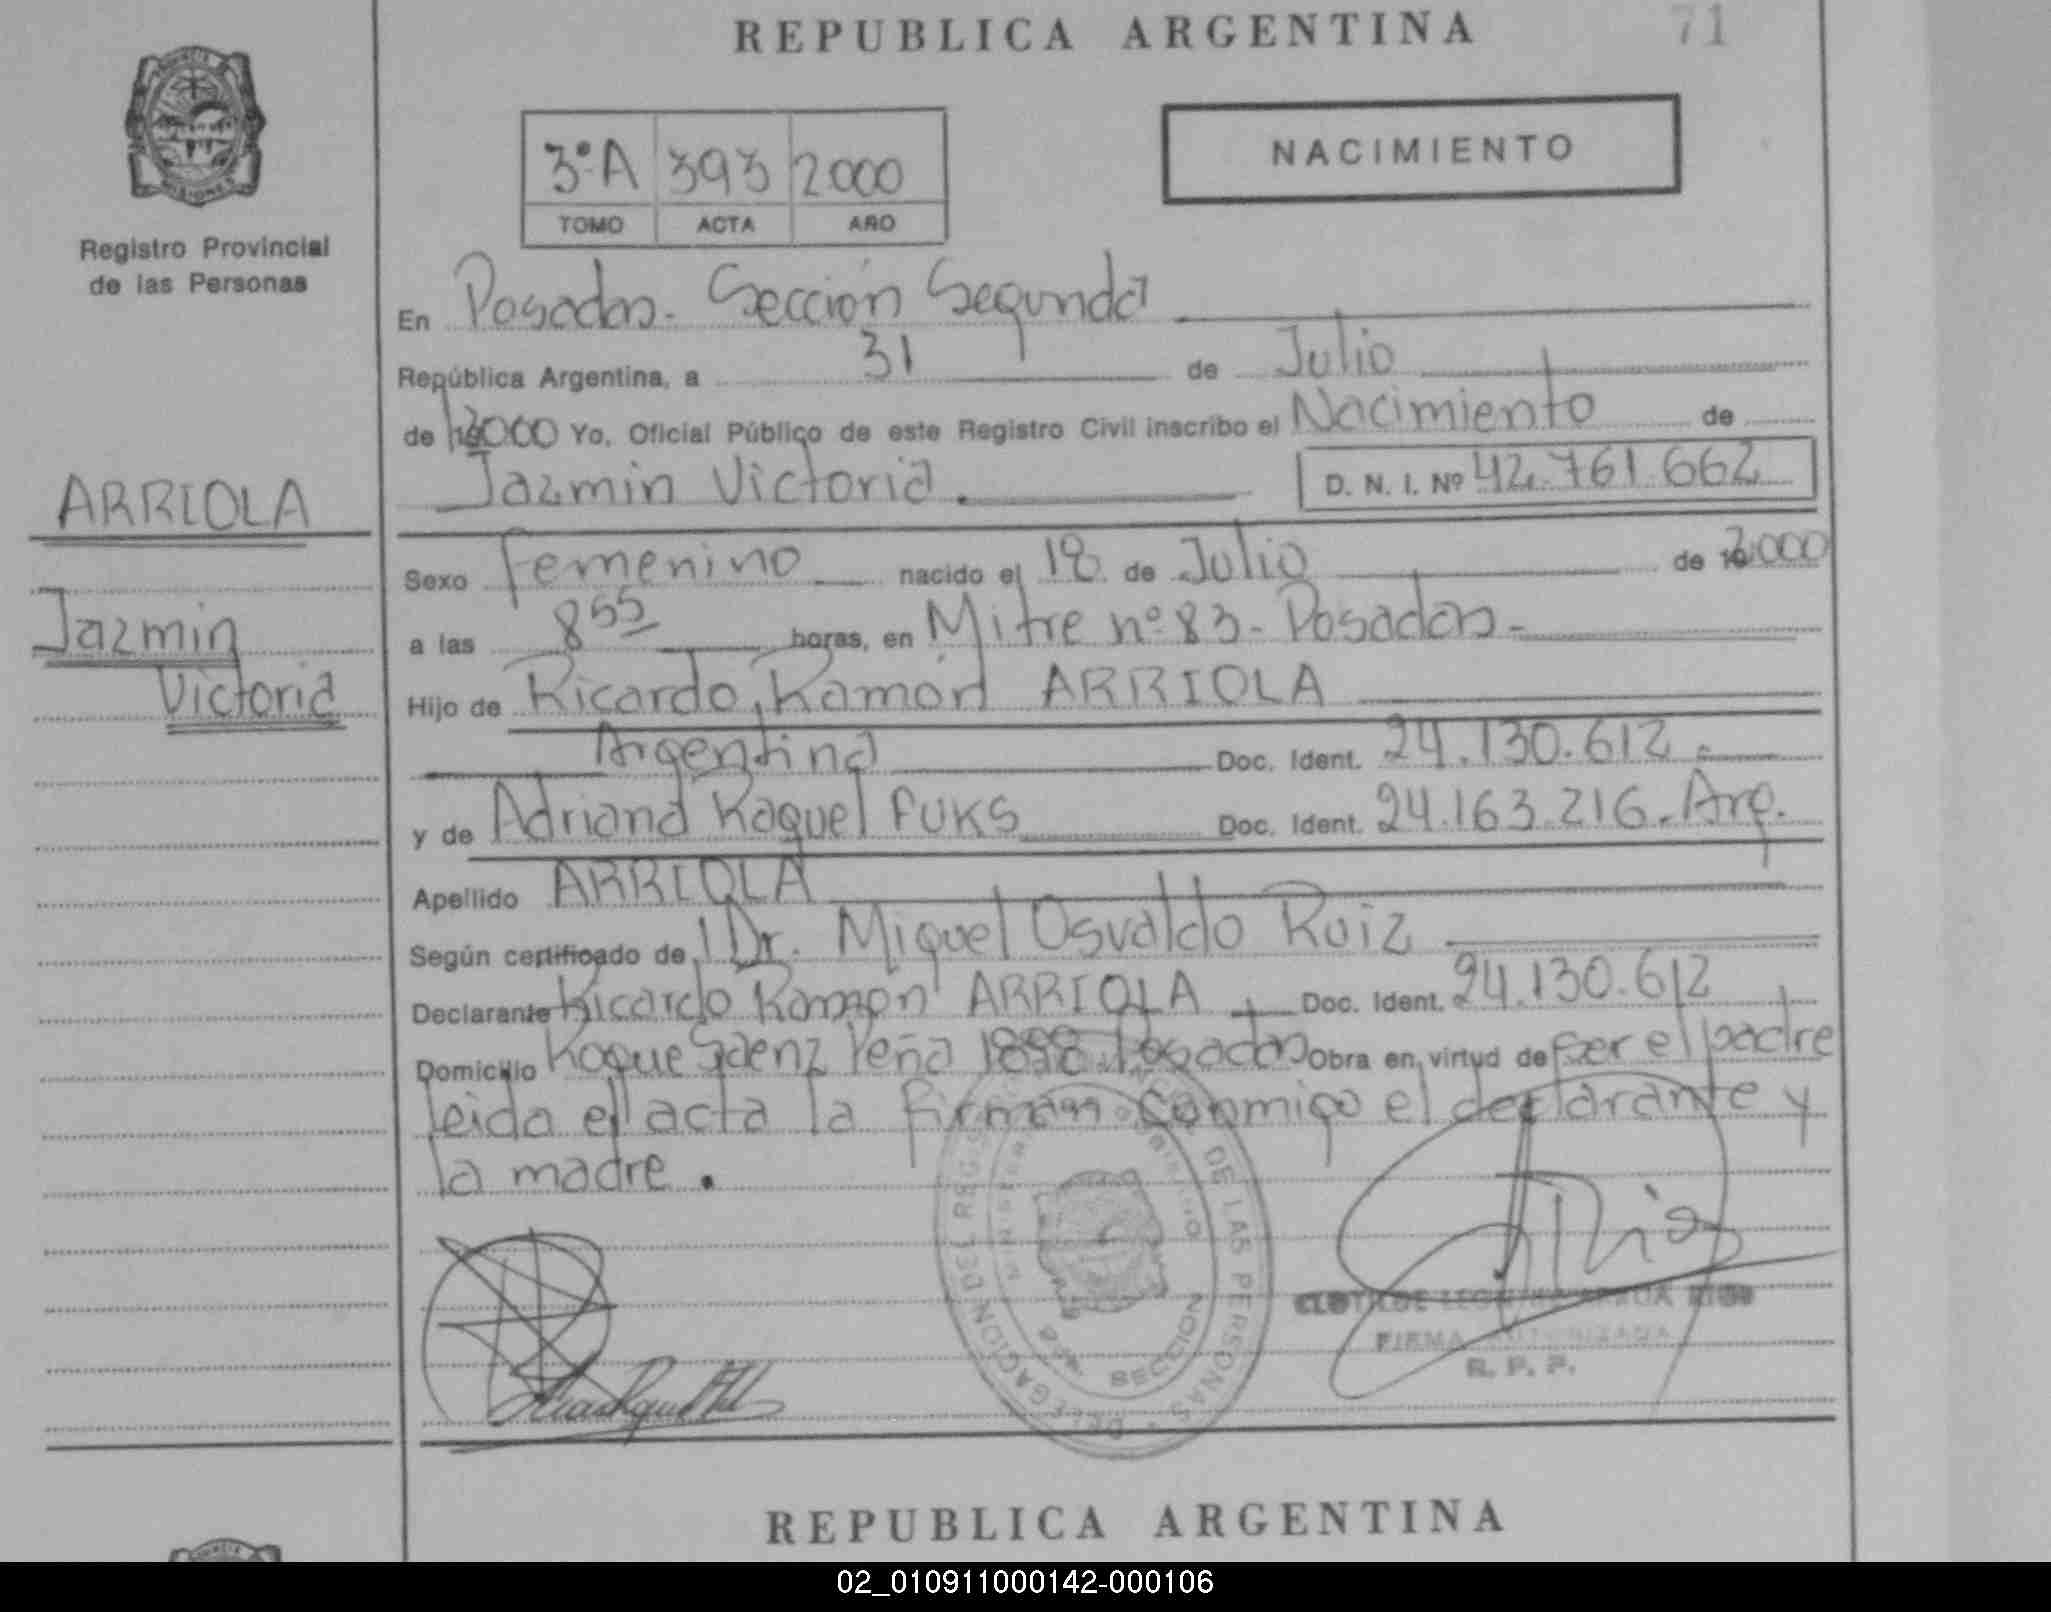 REPUBLICA ARGENTINA 71
MISIONES
Registro Provincial
de las Personas
3ºA 393 2000
TOMO ACTA AÑO
NACIMIENTO
En Posadas - Sección Segunda
República Argentina, a 31 de Julio
de 2000 Yo, Oficial Público de este Registro Civil inscribo el Nacimiento de
Jazmin Victoria. D. N. I. Nº 42.761.662
ARRIOLA
Jazmin
Victoria
Sexo Femenino nacido el 18 de Julio de 2000
a las 8 55 horas, en Mitre nº 83 - Posadas -
Hijo de Ricardo Ramón ARRIOLA
Argentina Doc. Ident. 24.130.612 -
y de Adriana Raquel FUKS Doc. Ident. 24.163.216. Arg.
Apellido ARRIOLA
Según certificado de Dr. Miguel Osvaldo Ruiz
Declarante Ricardo Ramon ARRIOLA Doc. Ident. 24.130.612
Domicilio Roque Saenz Peña 1898 Posadas Obra en virtud de ser el padre
leida el acta la firman conmigo el declarante y
la madre.
DELEGACION DEL REG. DE LAS PERSONAS
SECCION
FIRMA AUTORIZADA
R. P. P.
REPUBLICA ARGENTINA
02_010911000142-000106